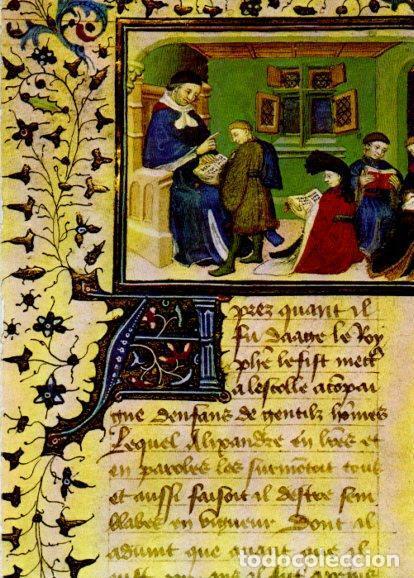 Aprez quant il
fu daage le Roy
phē le fist mectr̄
a lescolle acōpai
gne denfans de gentilz hōmes
Lequel Alixandre en l̄r̄es et
en paroles les surmontoit tous
et aussi faisoit il destre sem
blables en vigueur Dont al
aduint que quant que al
todocoleccion